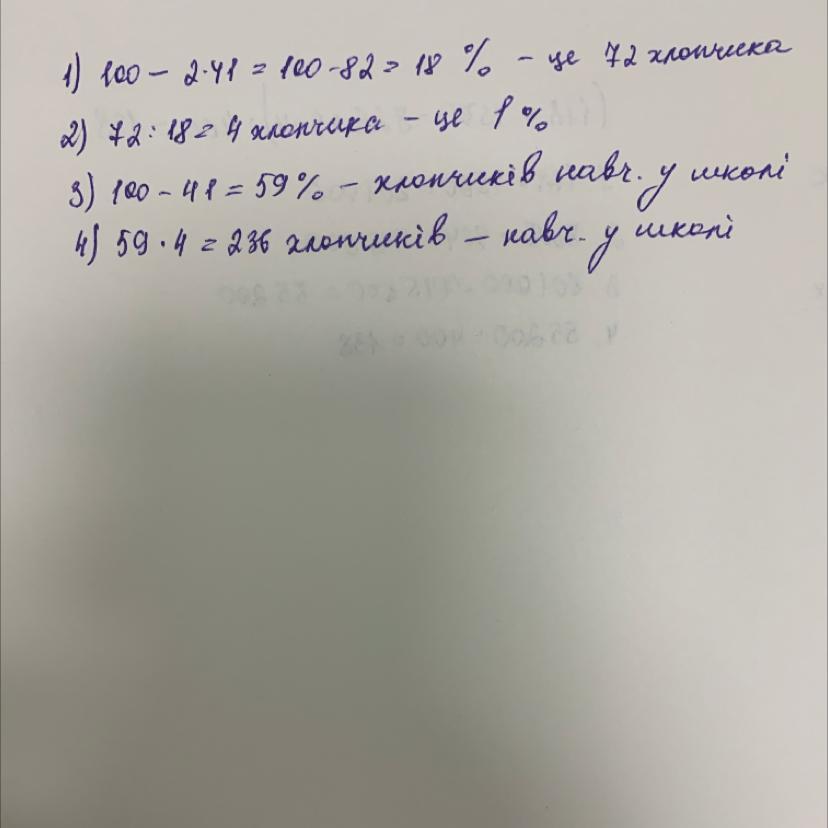 1) 100 - 2·41 = 100-82 = 18 % - це 72 хлопчика
2) 72 : 18 = 4 хлопчика - це 1 %
3) 100 - 41 = 59 % - хлопчиків навч. у школі
4) 59 · 4 = 236 хлопчиків - навч. у школі